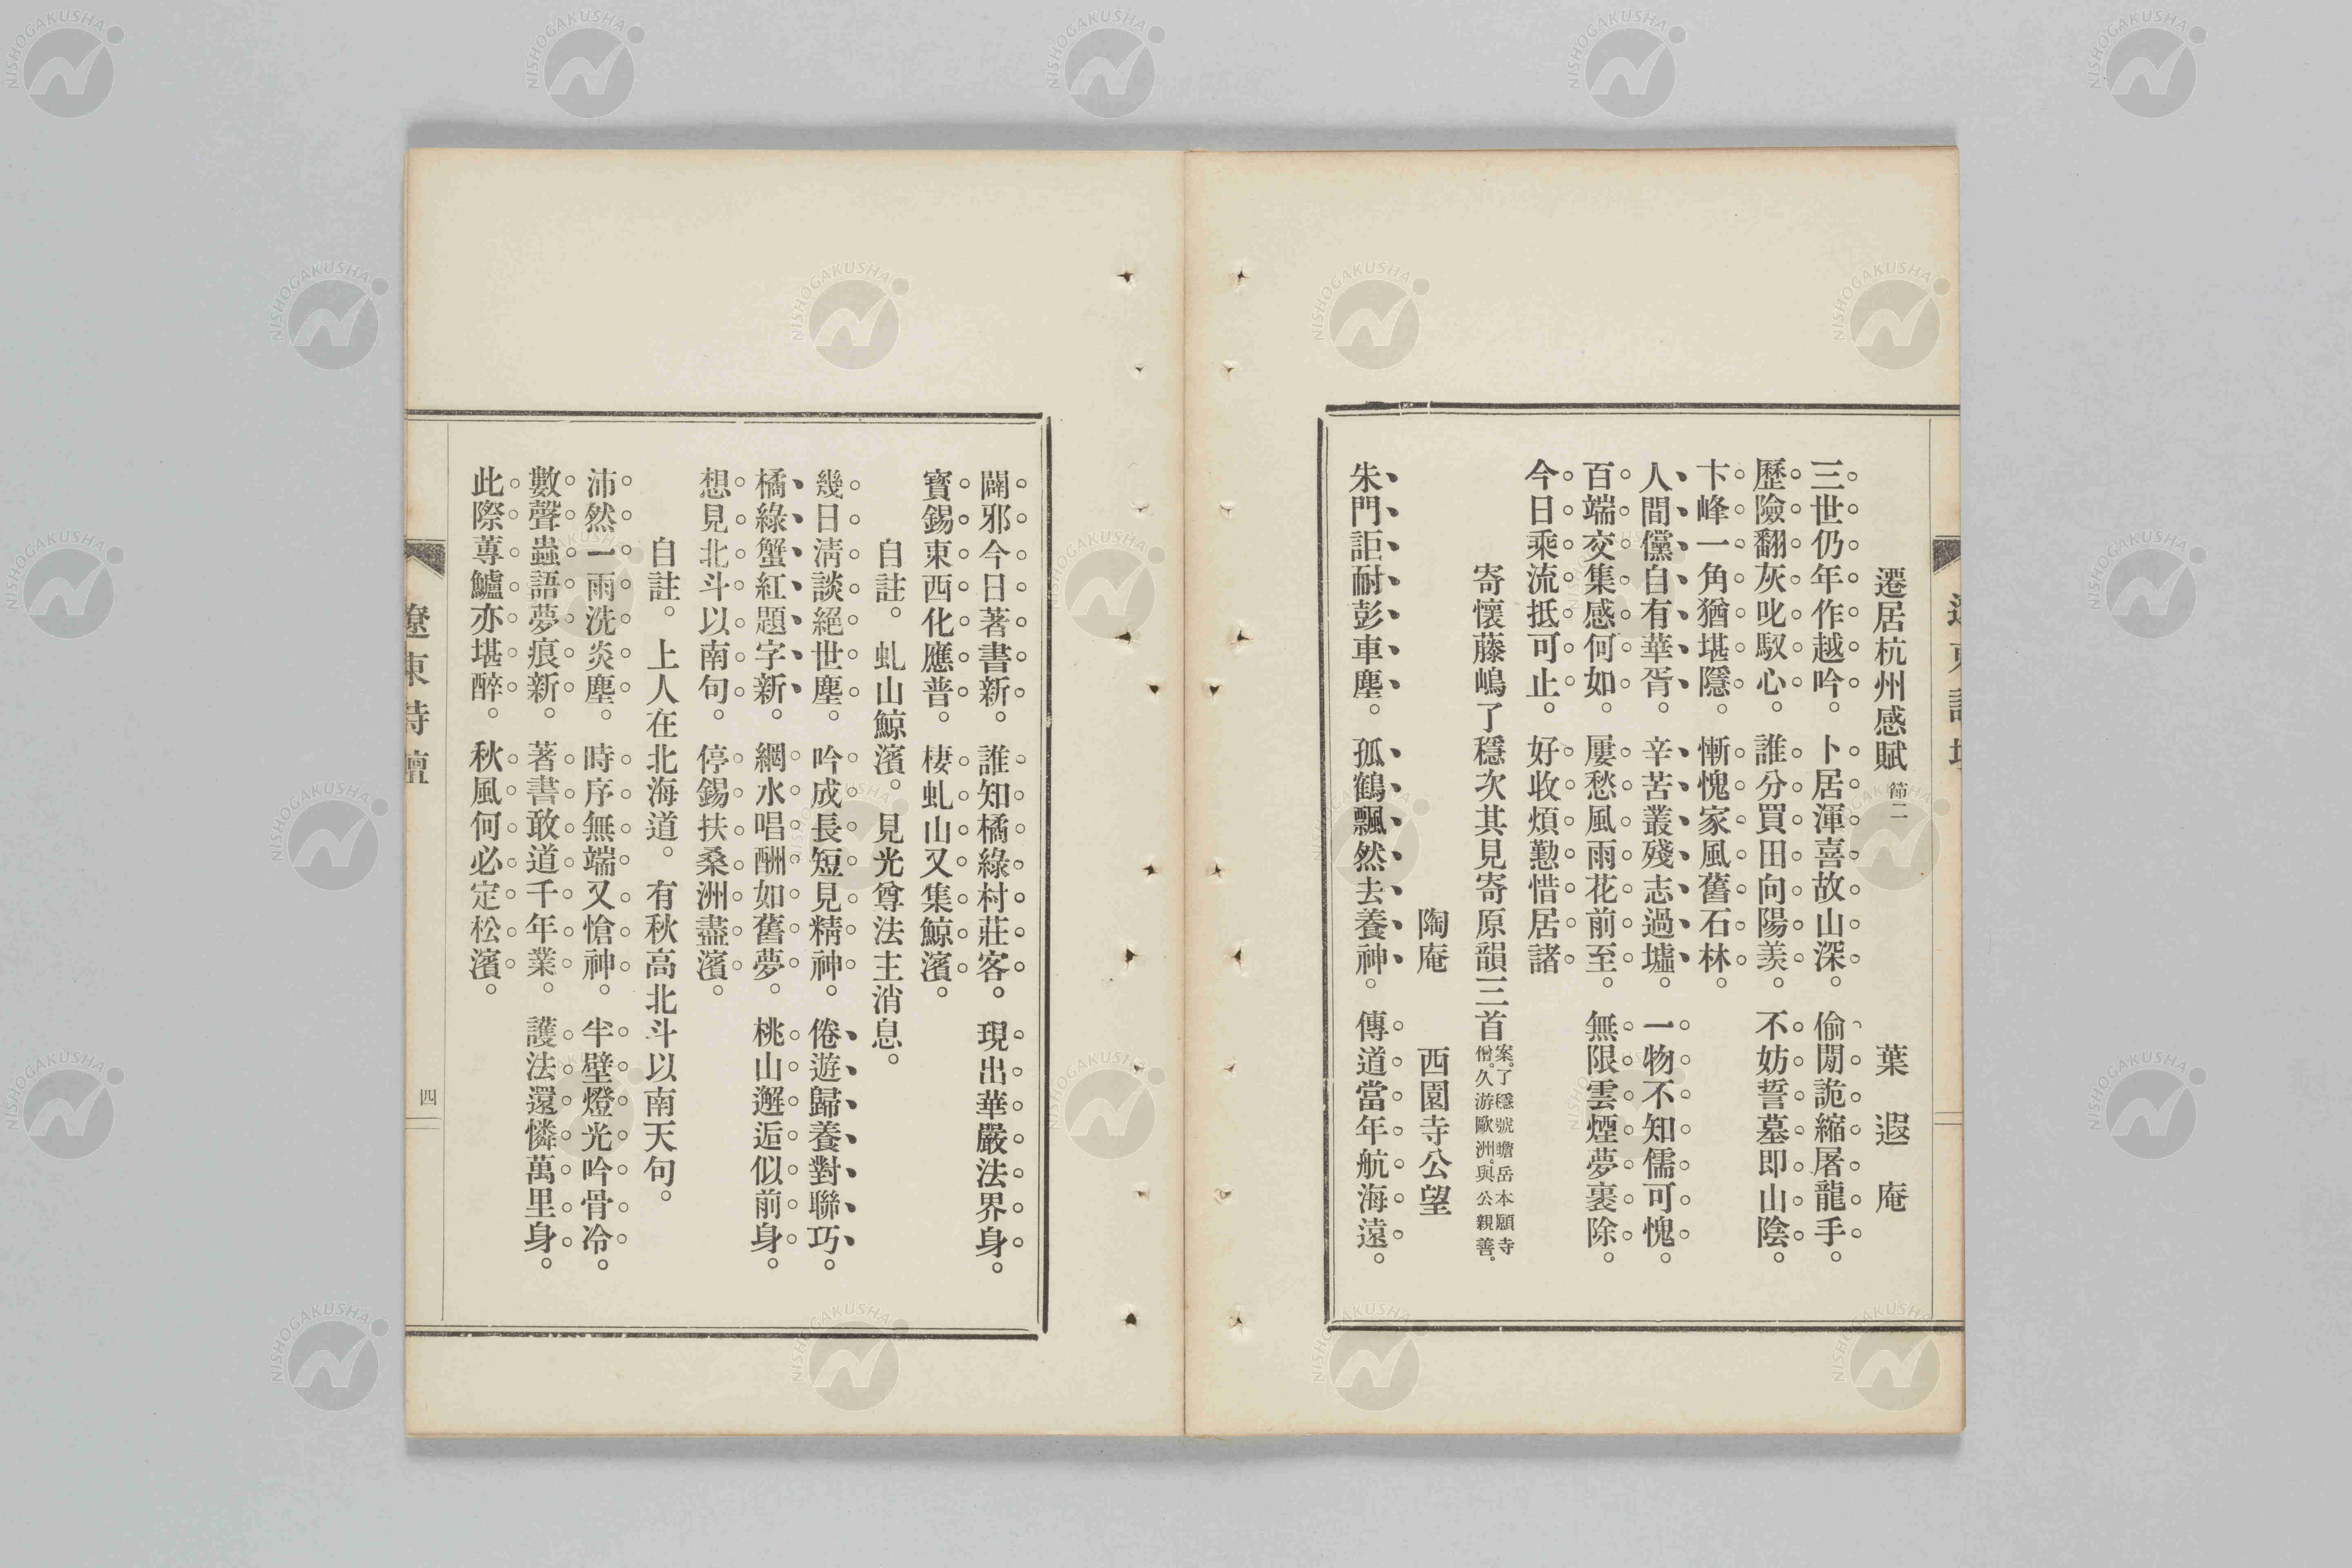 遷居杭州感賦 節二 葉遐庵
三世仍年作越吟。卜居渾喜故山深。偷閒詭縮屠龍手。
歷險翻灰叱馭心。誰分買田向陽羨。不妨誓墓即山陰。
卞峰一角猶堪隱。慚愧家風舊石林。
人間儻自有華胥。辛苦叢殘志過墟。一物不知儒可愧。
百端交集感何如。屢愁風雨花前至。無限雲煙夢裏除。
今日乘流抵可止。好收煩懃惜居諸
寄懷藤嶋了穩次其見寄原韻三首 案。了穩號瞻岳本願寺僧。久游歐洲。與公親善。
陶庵 西園寺公望
朱門詎耐彭車塵。孤鶴飄然去養神。傳道當年航海遠。
闢邪今日著書新。誰知橘綠村莊客。現出華嚴法界身。
寳錫東西化應普。棲虬山又集鯨濱。
自註。虬山鯨濱。見光尊法主消息。
幾日淸談絕世塵。吟成長短見精神。倦遊歸養對聯巧。
橘綠蟹紅題字新。網水唱酬如舊夢。桃山邂逅似前身。
想見北斗以南句。停錫扶桑洲盡濱。
自註。上人在北海道。有秋高北斗以南天句。
沛然一雨洗炎塵。時序無端又愴神。半壁燈光吟骨冷。
數聲蟲語夢痕新。著書敢道千年業。護法還憐萬里身。
此際蓴鱸亦堪醉。秋風何必定松濱。
遼東詩壇
四
NISHOGAKUSHA